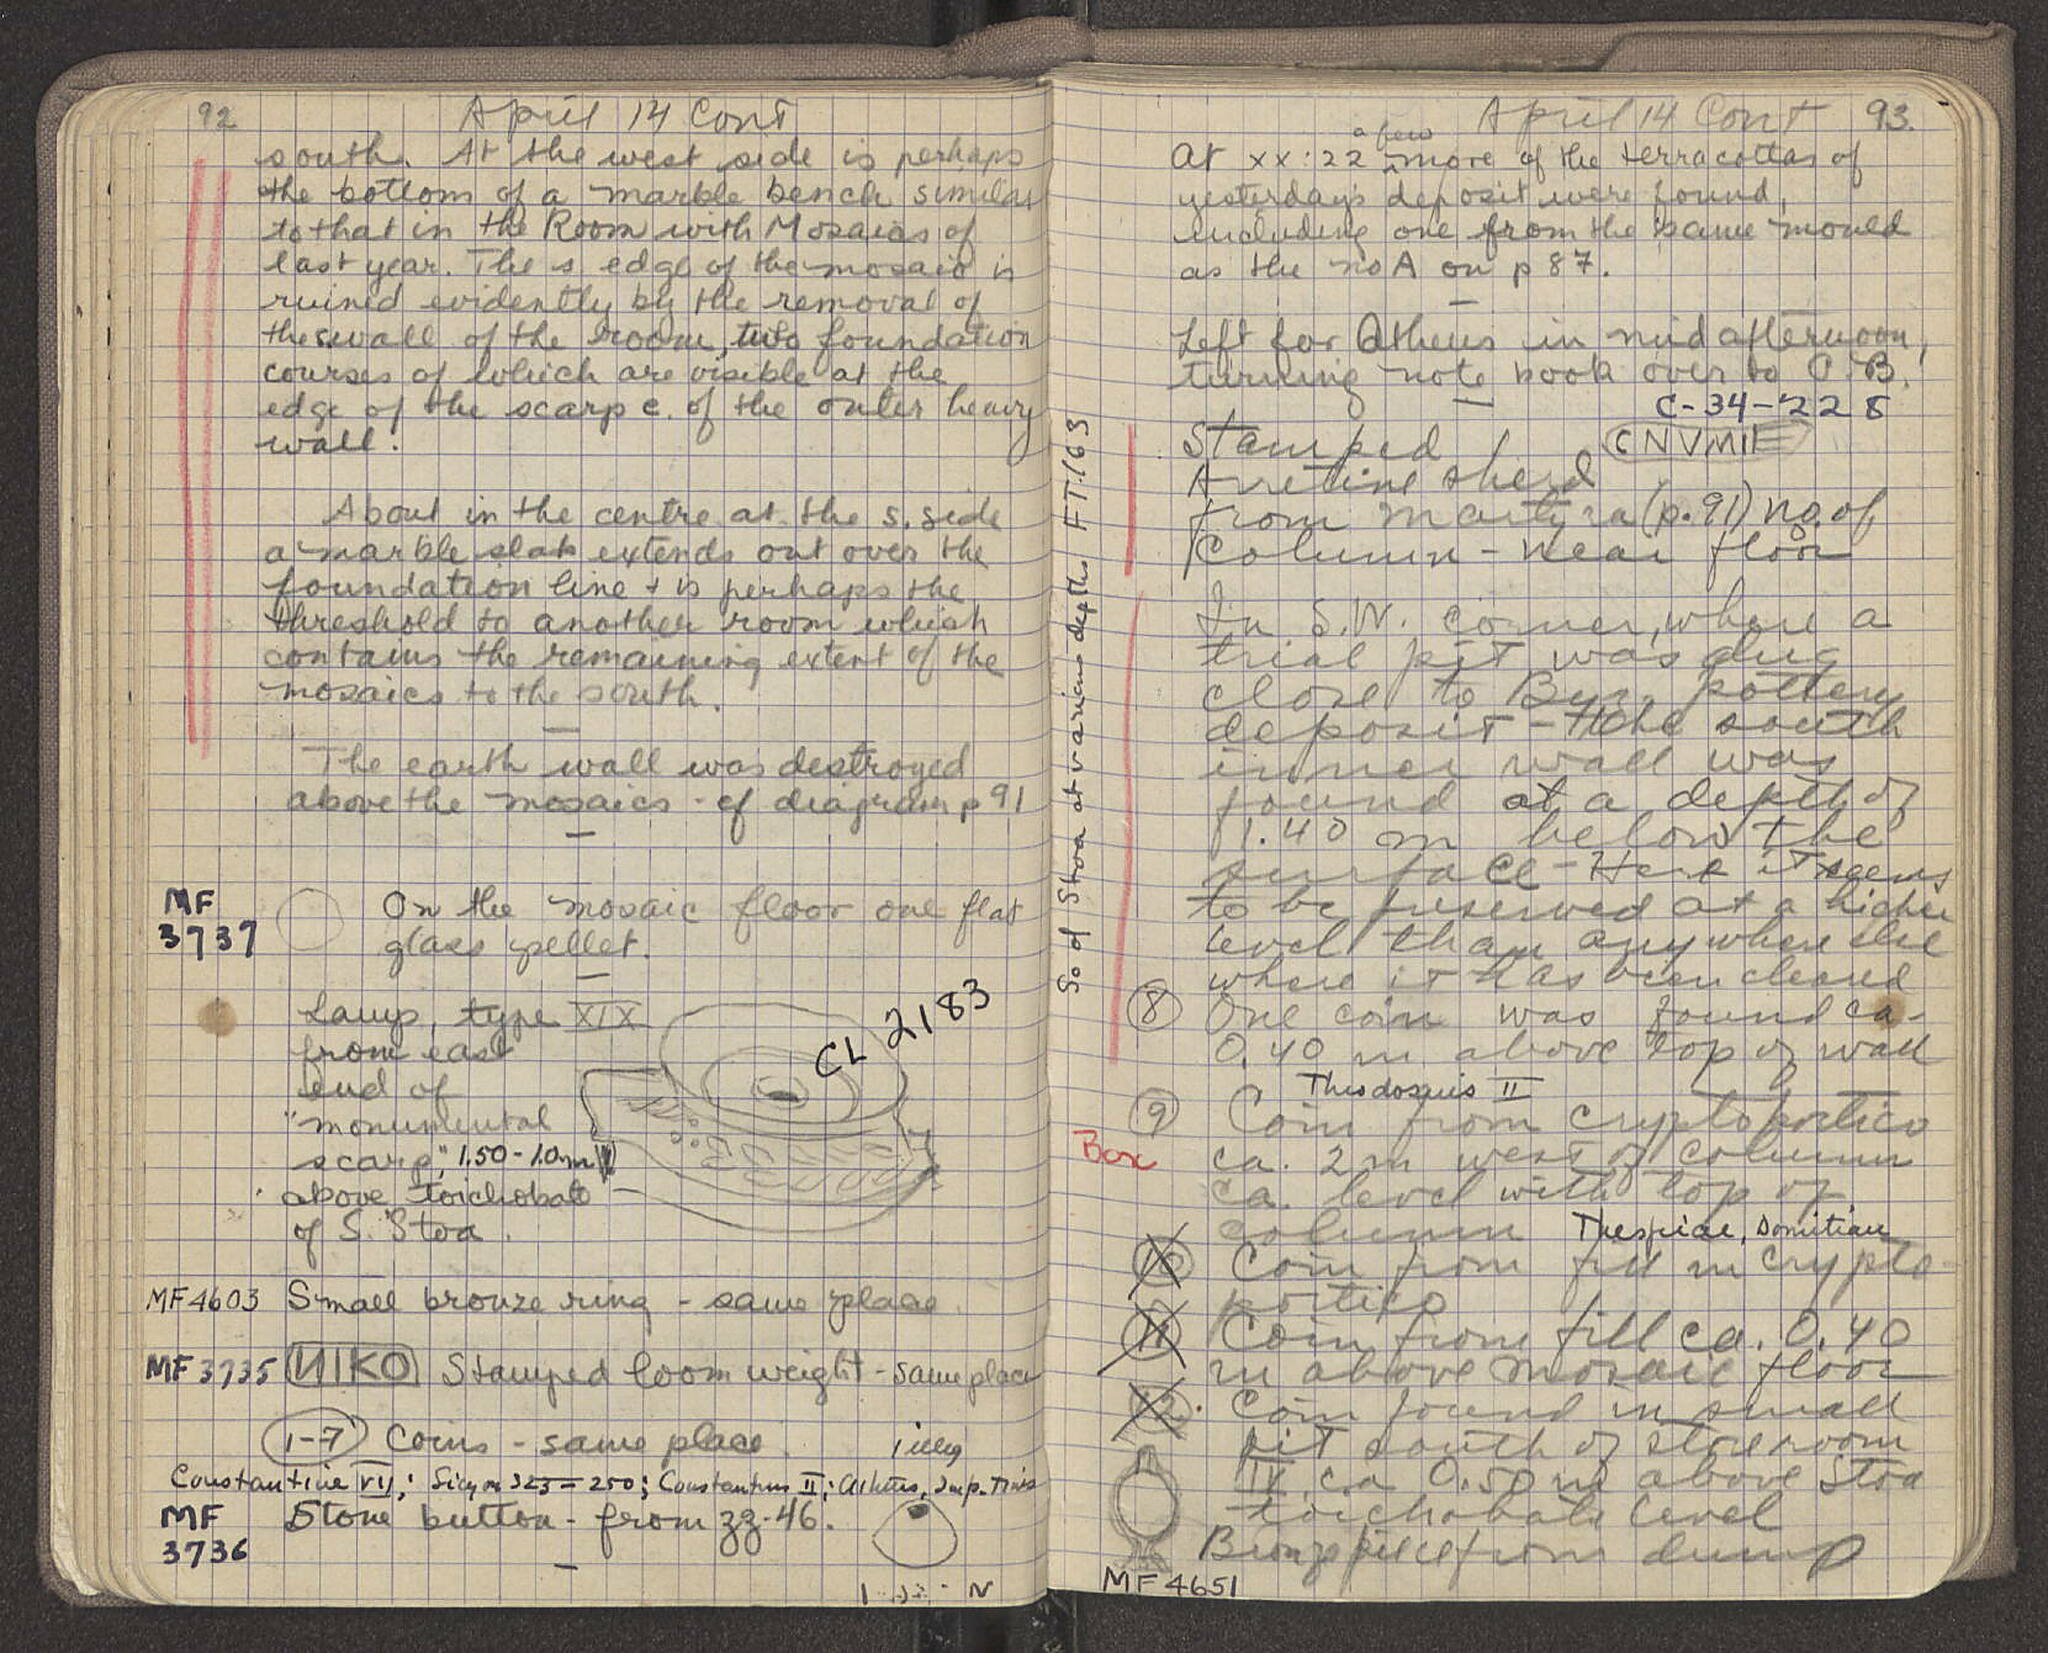 92 April 14 Cont
south. At the west side is perhaps
the bottom of a marble bench similar
to that in the Room with Mosaics of
last year. The s edge of the mosaic is
ruined evidently by the removal of
the s wall of the room, two foundation
courses of which are visible at the
edge of the scarp e. of the outer heavy
wall.
About in the centre at the s. side
a marble slab extends out over the
foundation line + is perhaps the
threshold to another room which
contains the remaining extent of the
mosaics to the south.
The earth wall was destroyed
above the mosaics - cf diagram p 91
MF
3737
On the mosaic floor one flat
glass pellet.
Lamp, type XIX
CL 2183
from east
end of
"monumental
scarp," 1.50-1.0 m
above toichobate
of S. Stoa.
MF 4603 Small bronze ring - same place.
MF 3735 NIKO Stamped loom weight - same place
1-7 Coins - same place. 1 illeg
Constantine VII; Sicyon 323-250; Constantius II; Athens, Imp. Times
MF
3736
Stone button - from zz-46.
April 14 Cont 93.
a few
At xx:22 more of the terracottas of
yesterday's deposit were found,
including one from the same mould
as the no A on p 87.
Left for Athens in mid afternoon,
turning note book over to O.B.
C-34-228
Stamped CNVMIE
Arretine sherd
from Martyra (p. 91) no. of
Column - near floor
In S.W. corner, where a
trial pit was dug
close to Byz. pottery
deposit - the south
inner wall was
found at a depth of
1.40 m below the
surface - Here it seems
to be preserved at a higher
level than anywhere else
where it has been cleared
8 One coin was found ca.
0.40 m above top of wall
Theodosius II
9 Coin from cryptoportico
Box
ca. 2 m west of column
ca. level with top of
column Thespiae, Domitian
10 Coin from fill in crypto-
portico
11 Coin from fill ca. 0.40
m above mosaic floor
12. Coin found in small
pit south of storeroom
IV ca 0.50 m above Stoa
toichobate level
Bronze piece from dump
MF 4651
So of Stoa at various depths FT.163